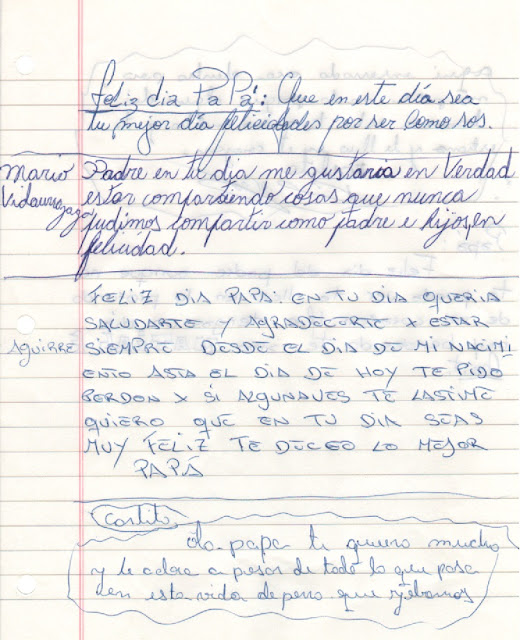 Feliz dia Pa Pá: Que en este día sea
tu mejor día felicidades por ser Como sos.
Mario Vidaurrazaga
Padre en tu dia me gustaria en Verdad
estar compartiendo cosas que nunca
pudimos compartir como padre e hijos, en
felicidad.
FELIZ DIA PAPÁ. EN TU DIA QUERIA
SALUDARTE Y AGRADECERTE X ESTAR
AGUIRRE
SIEMPRE DESDE EL DIA DE MI NACIMI
ENTO ASTA EL DIA DE HOY TE PIDO
BERDON X SI ALGUNAVES TE LASTIME
QUIERO QUE EN TU DIA SEAS
MUY FELIZ TE DECEO LO MEJOR
PAPÁ
ola papa te quiero mucho
y te adoro a pesar de todo lo que pasa
en esta vida de perro que